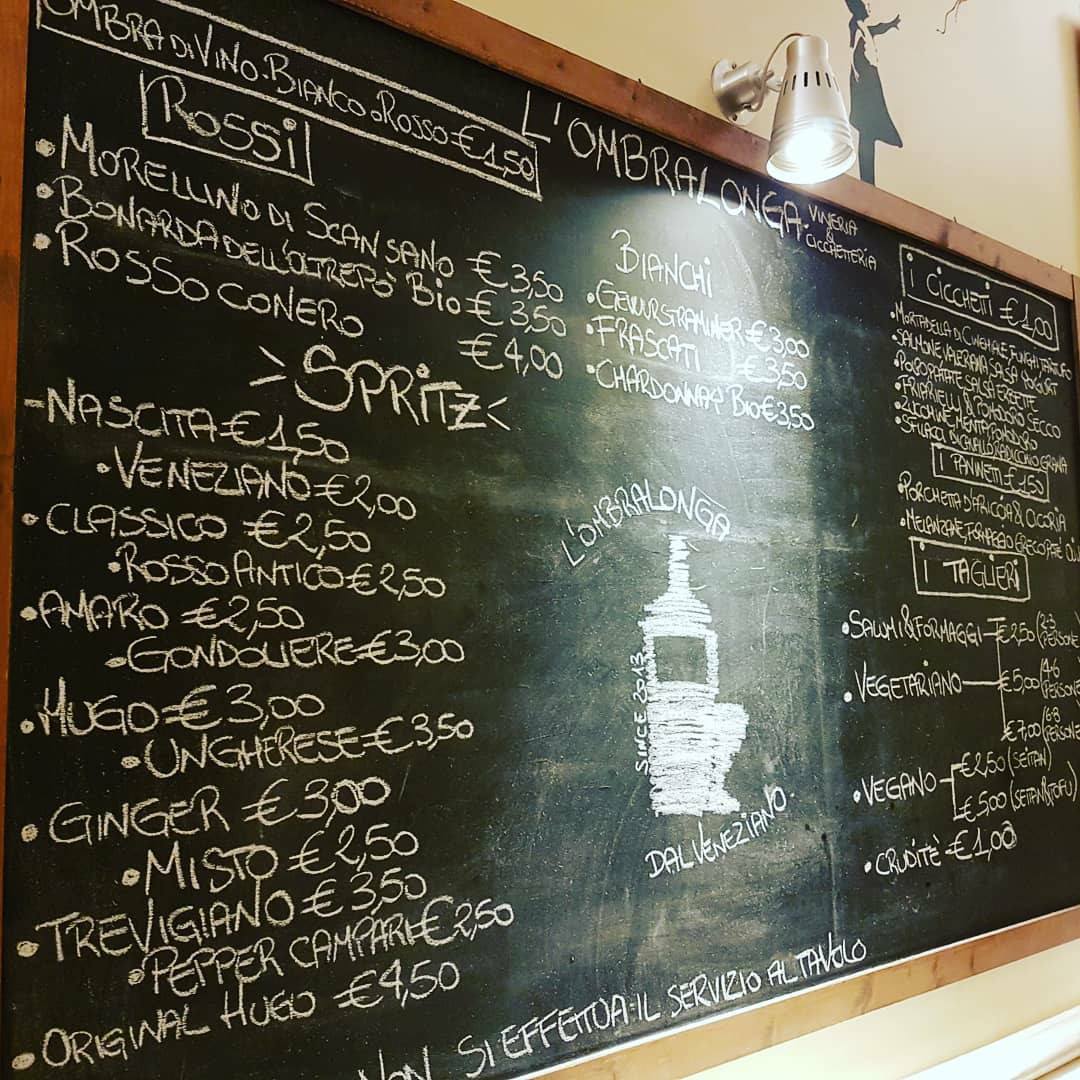 OMBRA DI VINO. BIANCO O ROSSO € 1,50
ROSSI
• MORELLINO DI SCANSANO € 3,50
• BONARDA DELL'OLTREPÒ BIO € 3,50
• ROSSO CONERO € 4,00
SPRITZ
- NASCITA € 1,50
• VENEZIANO € 2,00
• CLASSICO € 2,50
• ROSSO ANTICO € 2,50
• AMARO € 2,50
• GONDOLIERE € 3,00
• HUGO € 3,00
• UNGHERESE € 3,50
• GINGER € 3,00
• MISTO € 2,50
• TREVIGIANO € 3,50
• PEPPER CAMPARI € 2,50
• ORIGINAL HUGO € 4,50
L'OMBRALONGA.
VINERIA
&
CICCHETTERIA
BIANCHI
• GEWURSTRAMINER € 3,00
• FRASCATI € 3,50
• CHARDONNAY BIO € 3,50
L'OMBRALONGA
SINCE 2013
DAL VENEZIANO.
I CICCHETI € 1,00
• MORTADELLA DI CINGHIALE, FUNGHI TARTUFO
• SALMONE VALERIANA SALSA YOGURT
• POLPO PATATE SALSA ERBETTE
• FRIARIELLI & POMODORO SECCO
• ZUCCHINE, MENTA POMODORO
• SFILACCI DI CAVALLO RADICCHIO GRANA
I PANINETTI € 1,50
• PORCHETTA D'ARICCIA & CICORIA
• MELANZANE, POMODORO GRECO PATÈ
I TAGLIERI
• SALUMI & FORMAGGI € 2,50 (2-3 PERSONE)
• VEGETARIANO € 5,00 (4-6 PERSONE)
€ 7,00 (6-8 PERSONE)
• VEGANO € 2,50 (SEITAN)
€ 5,00 (SEITAN & TOFU)
• CRUDITÈ € 1,00
NON SI EFFETTUA IL SERVIZIO AL TAVOLO